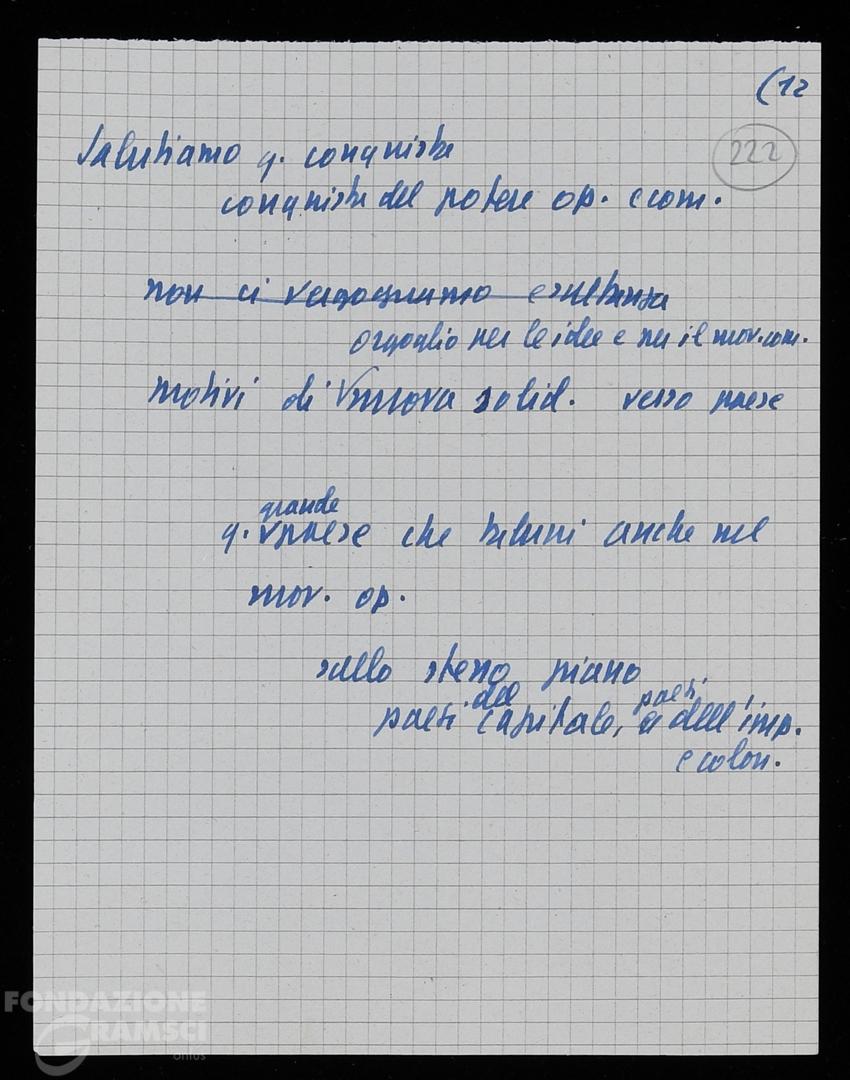 (12
222
Salutiamo q. conquiste
conquiste del potere op. e com.
non ci vergognamo esultanza
orgoglio per le idee e per il mov. com.
motivi di nuova solid. verso paese
grande
q. paese che taluni anche nel
mov. op.
sullo stesso piano
del paesi
paesi capitale, e dell'imp.
e colon.
FONDAZIONE
GRAMSCI
onlus